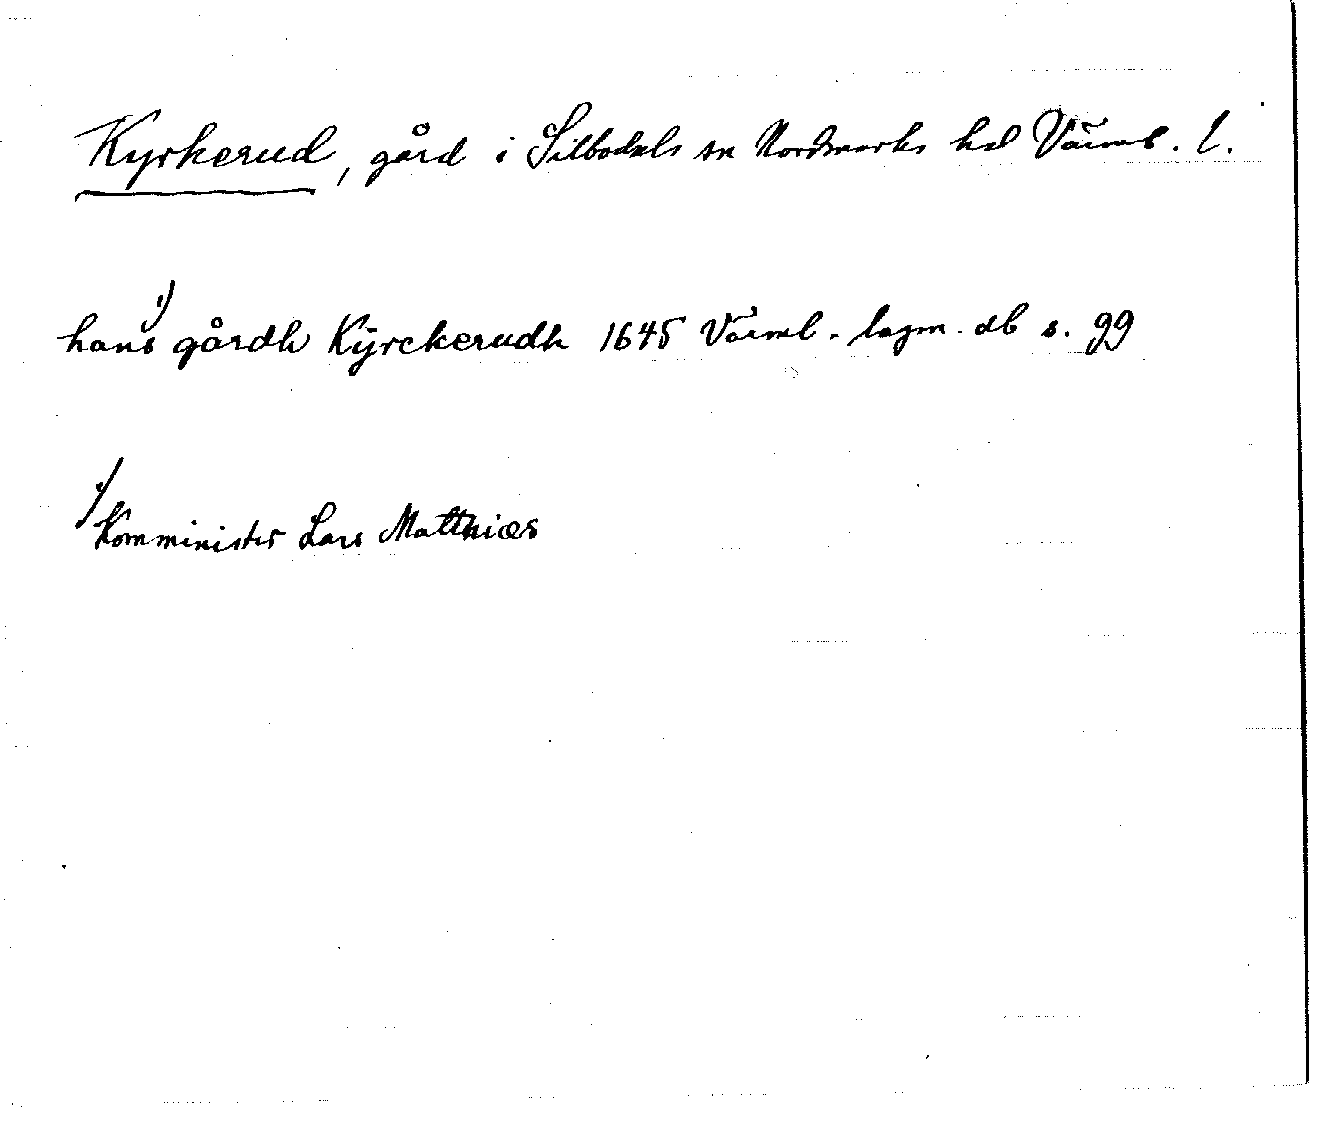 Kyrkerud, gård i Silbodals sn Nordmarks hd Värml. l.
hans 1) gårdh Kÿrckerudh 1645 Värml. lagm. db s. 99
1) Komminister Lars Matthiæs